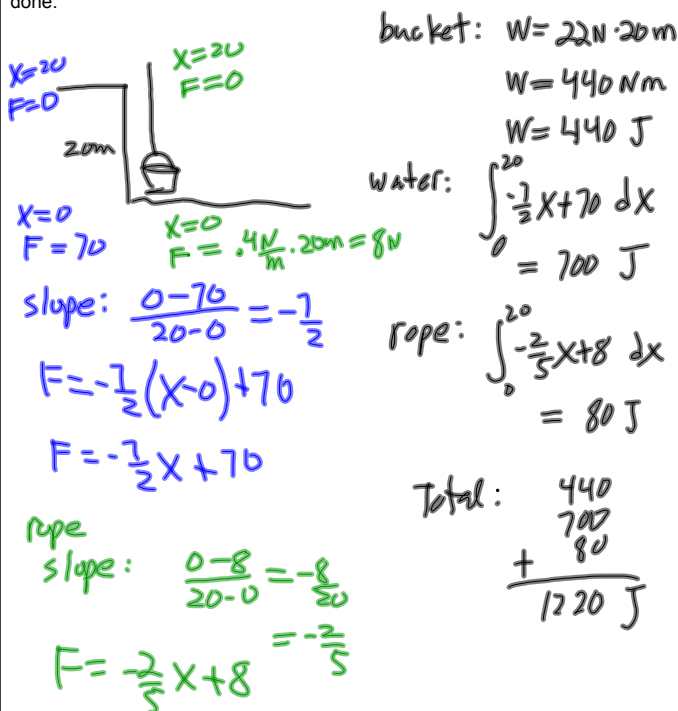 done.
X=20
F=0
20m
X=20
F=0
X=0
F=70
X=0
F= .4 N/m · 20m = 8N
slope: (0-70)/(20-0) = -7/2
F=-7/2(X-0)+70
F=-7/2 X+70
rope
slope: (0-8)/(20-0) = -8/20
= -2/5
F= -2/5 X+8
bucket: W= 22N·20m
W= 440 Nm
W= 440 J
water: ∫₀²⁰ -7/2 X+70 dX
= 700 J
rope: ∫₀²⁰ -2/5 X+8 dx
= 80 J
Total: 440
700
+ 80
1220 J